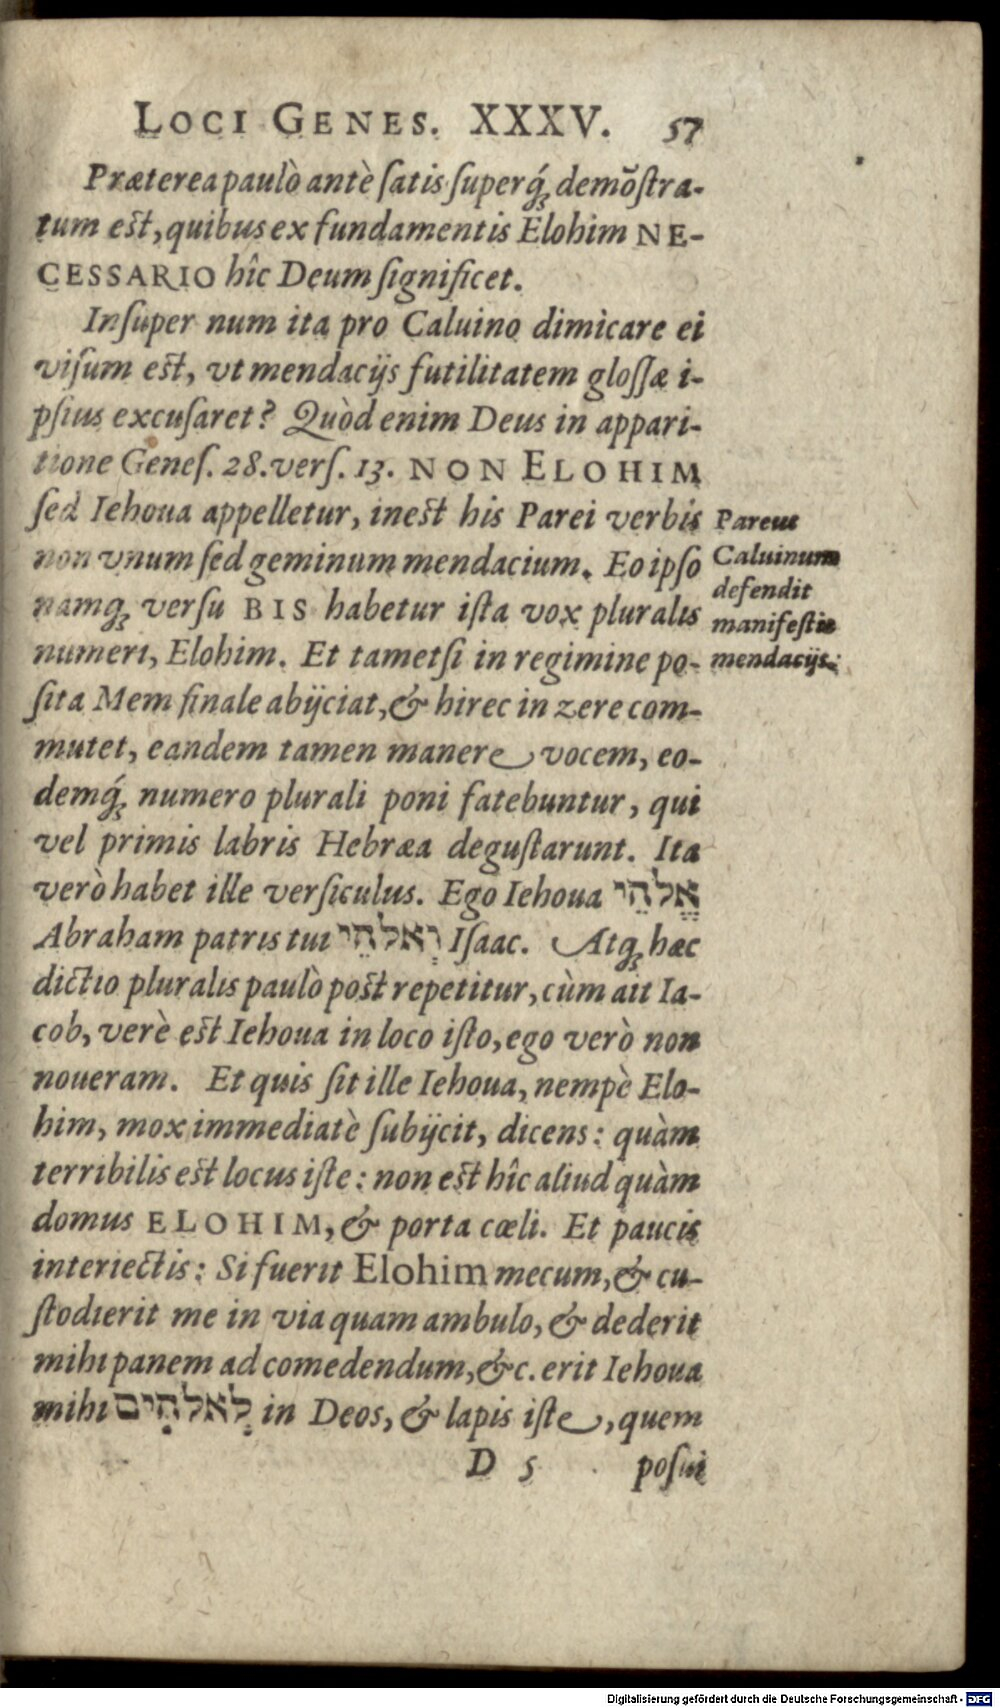 LOCI GENES. XXXV. 57
Præterea paulò antè ſatis ſuperq́ꝫ demõſtra-
tum eſt, quibus ex fundamentis Elohim NE-
CESSARIO hîc Deum ſignificet.
Inſuper num ita pro Caluino dimicare ei
viſum eſt, vt mendacijs futilitatem gloſſæ i-
pſius excuſaret? Quòd enim Deus in appari-
tione Geneſ. 28. verſ. 13. NON ELOHIM
ſed Iehoua appelletur, ineſt his Parei verbis
non vnum ſed geminum mendacium. Eo ipſo
namqꝫ verſu BIS habetur iſta vox pluralis
numeri, Elohim. Et tametſi in regimine po-
ſita Mem finale abijciat, & hirec in zere com-
mutet, eandem tamen manere vocem, eo-
demq́ꝫ numero plurali poni fatebuntur, qui
vel primis labris Hebræa deguſtarunt. Ita
verò habet ille verſiculus. Ego Iehoua אֱלהֵי
Abraham patris tui וְאלהֵי Iſaac. Atqꝫ hæc
dictio pluralis paulò poſt repetitur, cùm ait Ia-
cob, verè eſt Iehoua in loco iſto, ego verò non
noueram. Et quis ſit ille Iehoua, nempè Elo-
him, mox immediatè ſubijcit, dicens: quàm
terribilis eſt locus iſte: non eſt hîc aliud quàm
domus ELOHIM, & porta cœli. Et paucis
interiectis: Si fuerit Elohim mecum, & cu-
ſtodierit me in via quam ambulo, & dederit
mihi panem ad comedendum, &c. erit Iehoua
mihi לֵאלהִים in Deos, & lapis iſte, quem
D 5 poſui
Pareus
Caluinum
defendit
manifeſtis
mendacijs.
Digitalisierung gefördert durch die Deutsche Forschungsgemeinschaft - DFG